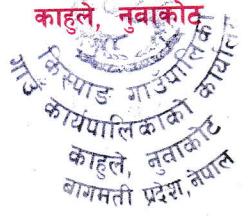 काहुले, नुवाकोट
किस्पाङ गाउँपालिका
गाउँ कार्यपालिकाको कार्यालय
काहुले, नुवाकोट
बागमती प्रदेश, नेपाल